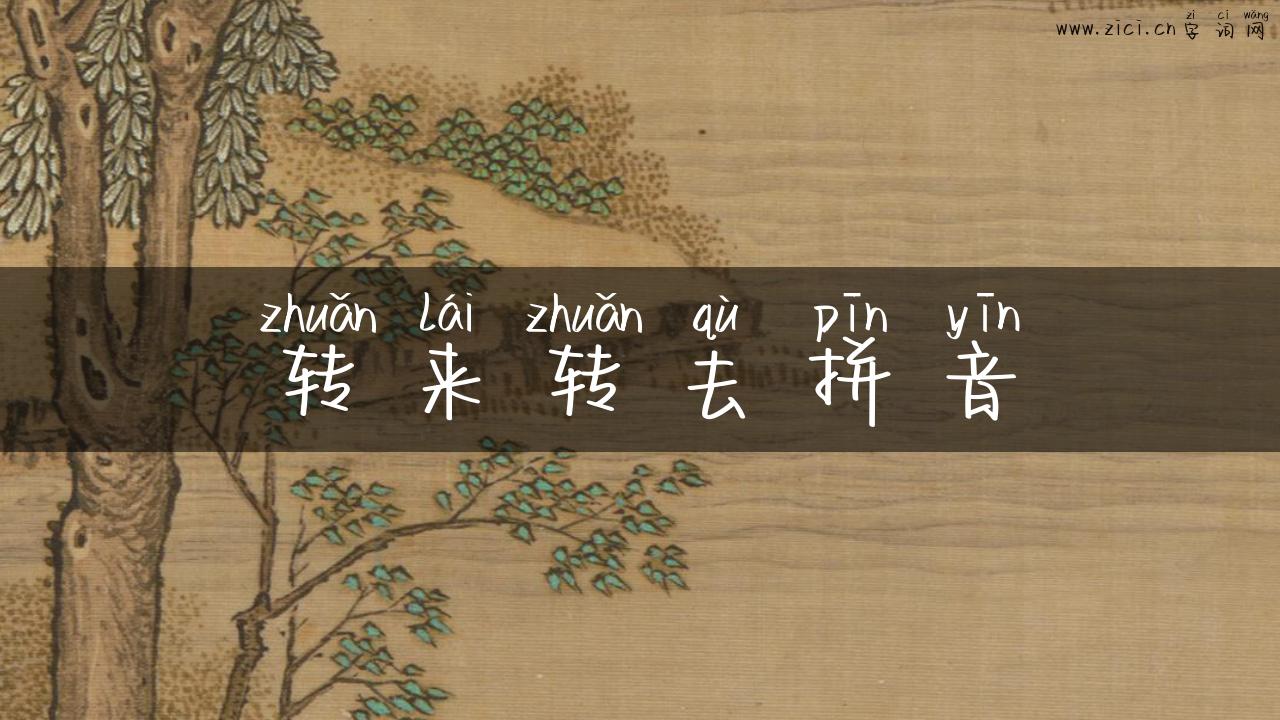 zì cí wǎng
www.zici.cn 字词网
zhuǎn lái zhuǎn qù pīn yīn
转来转去拼音